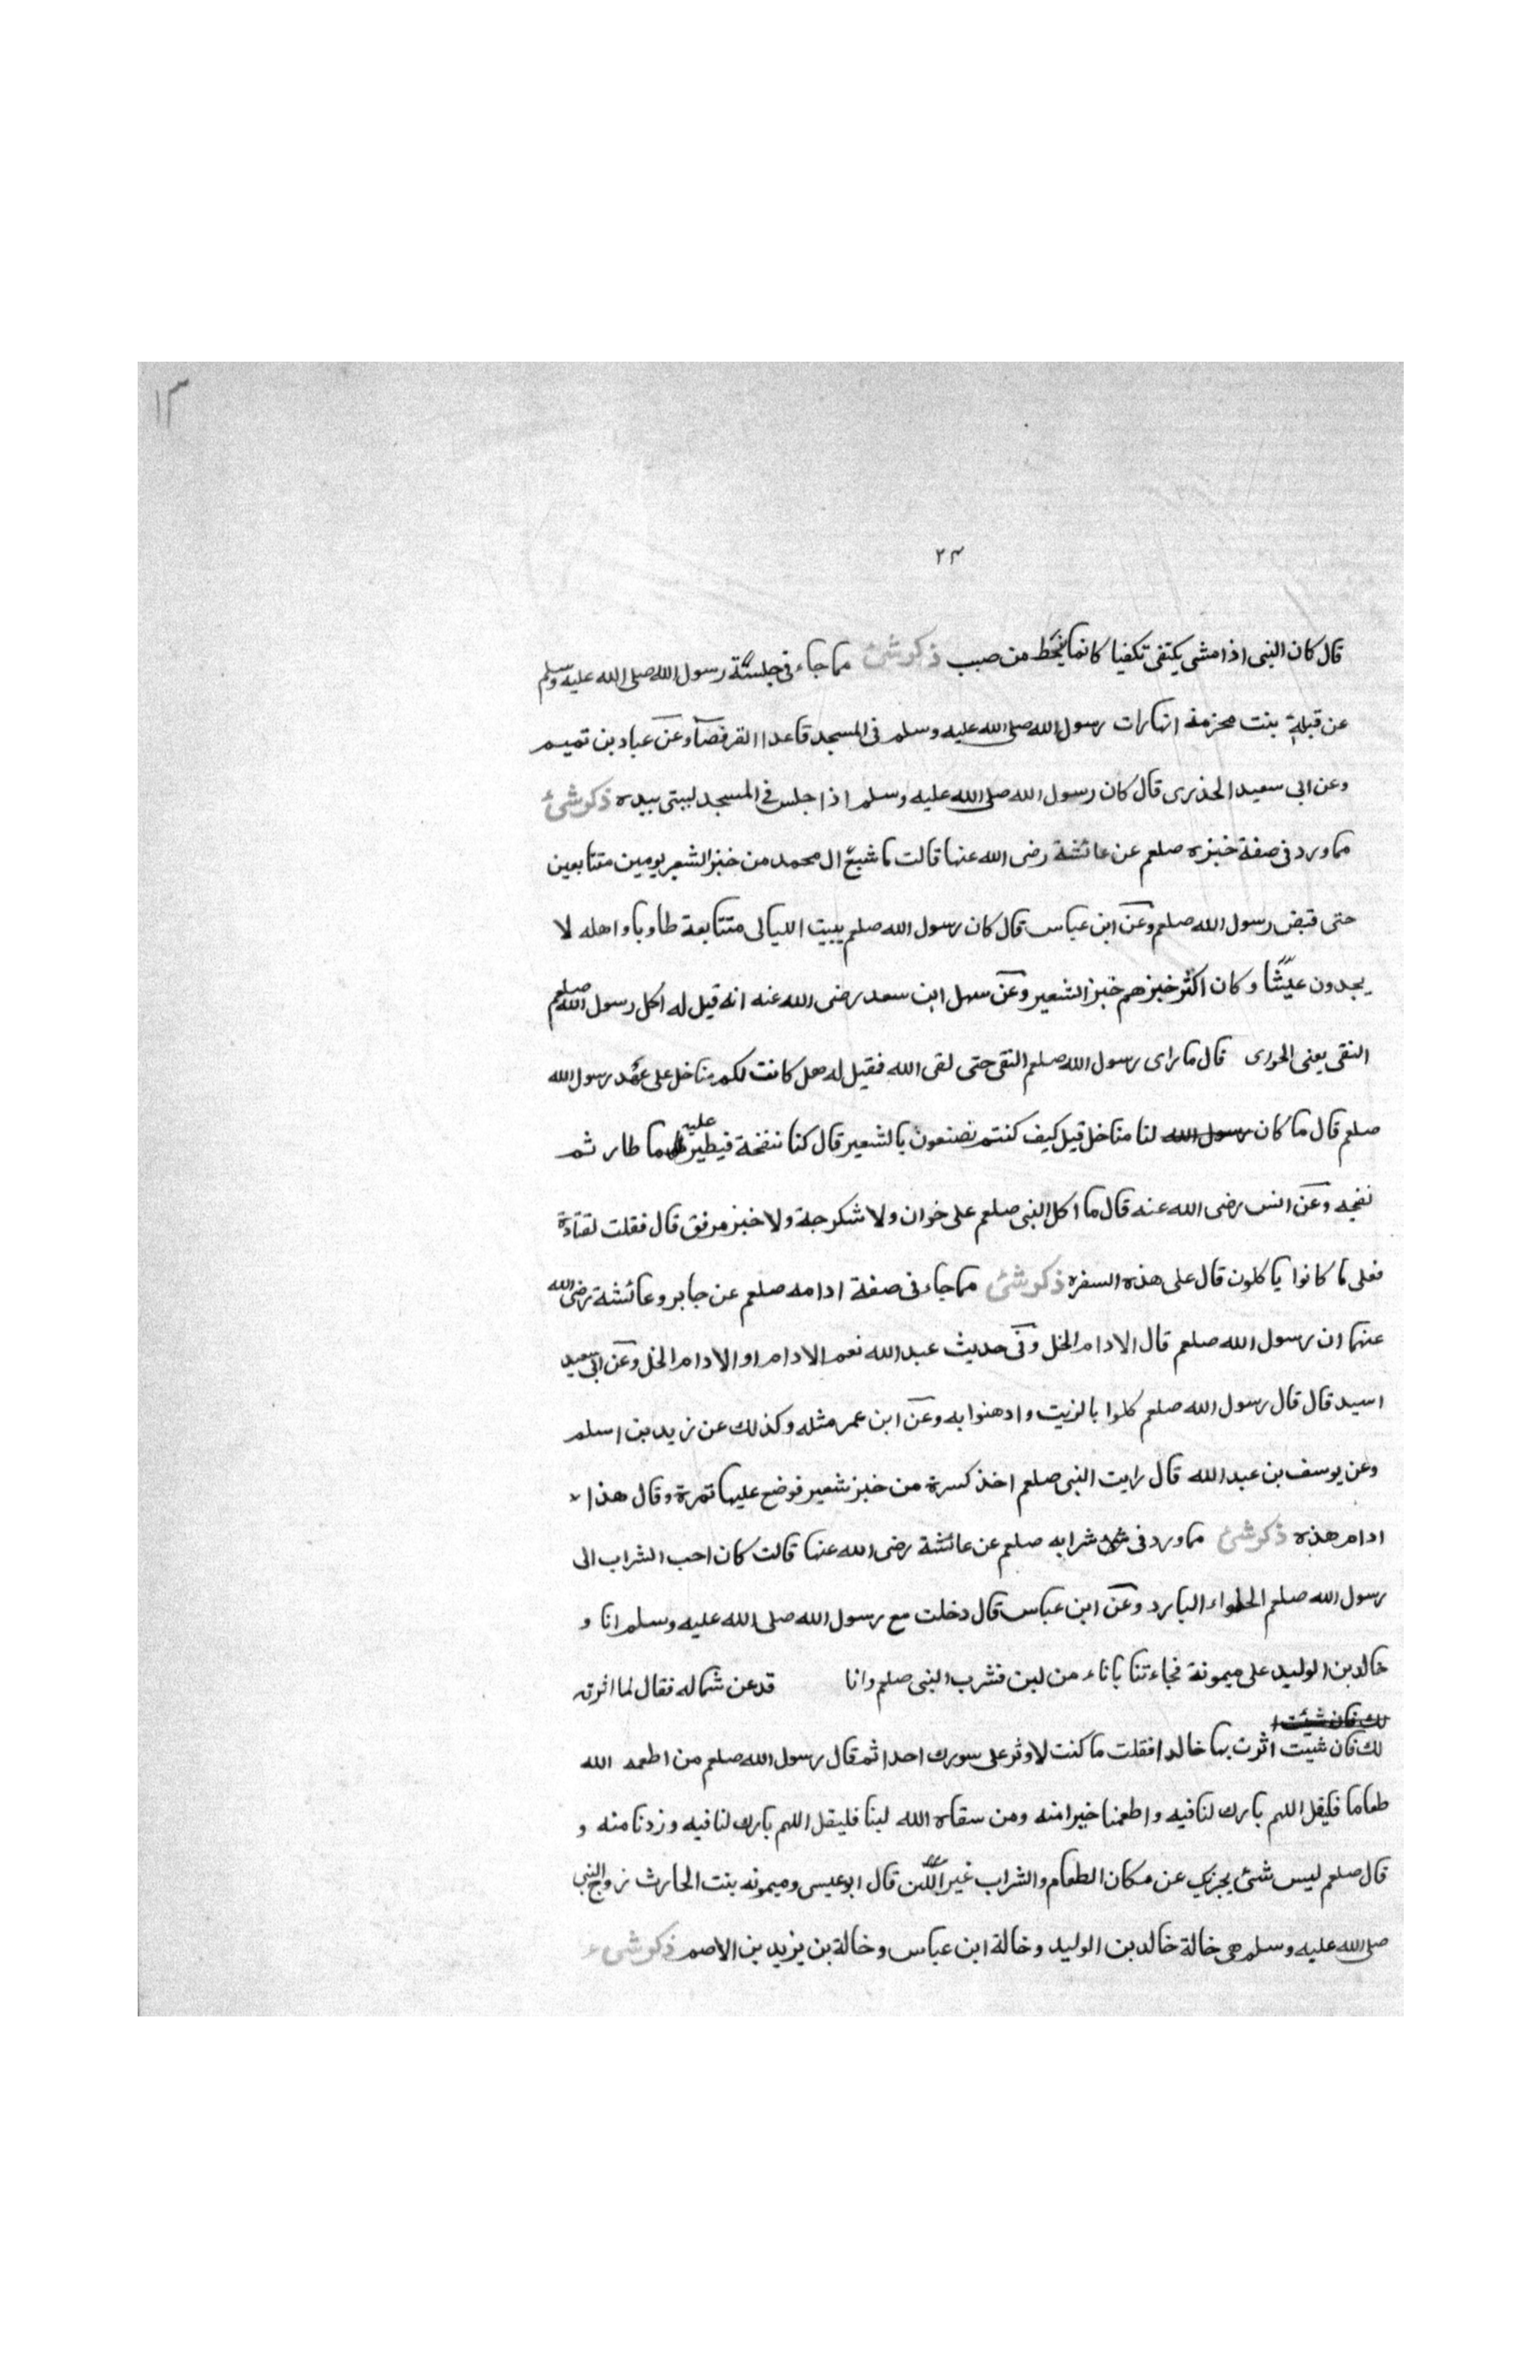 ١٣
٢٣
قال كان النبى اذا مشى يكتفى تكفيا كانما ينحط من صبب ذكر شئ مما جاء فى جلسة رسول الله صلى الله عليه وسلم
عن قبلة بنت مخزمة انها رات رسول الله صلى الله عليه وسلم فى المسجد قاعدا القرفصآ وعن عباد بن تميم
وعن ابى سعيد الخذرى قال كان رسول الله صلى الله عليه وسلم اذا جلس فى المسجد لببتى بيده ذكر شئ
مما ورد فى صفة خبزه صلعم عن عائشة رضى الله عنها قالت ما شبع ال محمد من خبز الشعير يومين متتابعين
حتى قبض رسول الله صلعم وعن ابن عباس قال كان رسول الله صلعم يبيت الليالى متتابعة طاوبا واهله لا
يجدون عيشًا وكان اكثر خبزهم خبز الشعير وعن سهل ابن سعد رضى الله عنه انه قيل له اكل رسول الله صلعم
النقى يعنى الحورى قال ما راى رسول الله صلعم النقى حتى لقى الله فقيل له هل كانت لكم مناخل على عهد رسول الله
صلعم قال ما كان رسول الله لنا مناخل قيل كيف كنتم تصنعون بالشعير قال كنا ننفخة فيطير عليه ما طار ثم
نفجه وعن انس رضى الله عنه قال ما اكل النبى صلعم على خوان ولا شكرجة ولا خبز مرفق قال فقلت لقتادة
فعلى ما كانوا ياكلون قال على هذه السفره ذكر شئ مما جاء فى صفة ادامه صلعم عن جابر وعائشة رضى الله
عنهما ان رسول الله صلعم قال الادام الخل وفى حديث عبد الله نعم الادام او الادام الخل وعن ابى سعيد
اسيد قال قال رسول الله صلعم كلوا بالزيت وادهنوا به وعن ابن عمر مثله وكذلك عن زيد بن اسلم
وعن يوسف بن عبد الله قال رايت النبى صلعم اخذ كسرة من خبز شعير فوضع عليها تمرة وقال هذا
ادام هذه ذكر شئ مما ورد فى شرابه صلعم عن عائشة رضى الله عنها قالت كان احب الشراب الى
رسول الله صلعم الحلواء البارد وعن ابن عباس قال دخلت مع رسول الله صلى الله عليه وسلم انا و
خالد بن الوليد على ميمونة فجاءتنا باناء من لبن فشرب النبى صلعم وانا قد عن شماله فقال لما اثرته
لك فان شئت
لك فان شيت اثرت بها خالدا فقلت ما كنت لاوثر على سورك احدا ثم قال رسول الله صلعم من اطعمه الله
طعاما فليقل اللهم بارك لنا فيه واطعمنا خيرا منه ومن سقاه الله لبنا فليقل اللهم بارك لنا فيه وزدنا منه و
قال صلعم ليس شئ يجزى عن مكان الطعام والشراب غير اللبن قال ابو عيسى وميمونه بنت الحارث زوج النبى
صلى الله عليه وسلم هى خالة خالد بن الوليد وخالة ابن عباس وخالة بن يزيد بن الاصم ذكر شىء